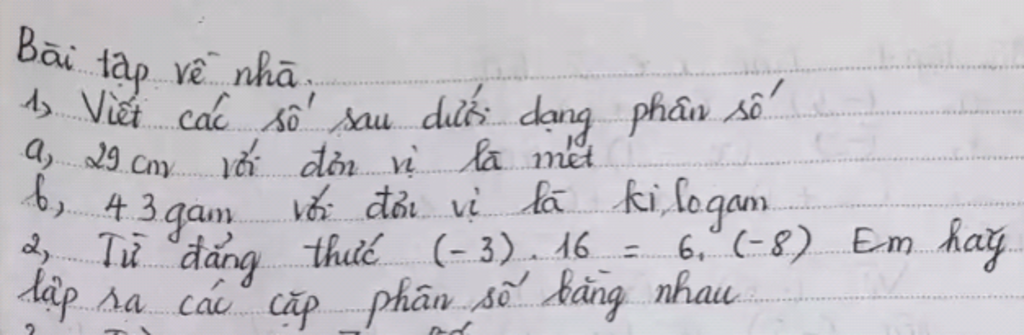 Bài tập về nhà.
1, Viết các số sau dưới dạng phân số
a, 29 cm với đơn vị là mét
b, 43 gam với đơn vị là ki lo gam
2, Từ đẳng thức (-3) . 16 = 6. (-8) Em hãy
lập ra các cặp phân số bằng nhau